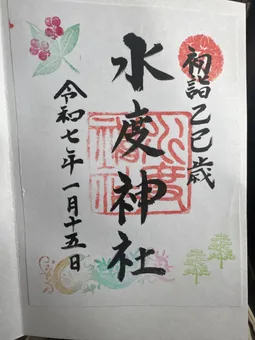 初詣乙巳歳
水度神社
令和七年一月十五日